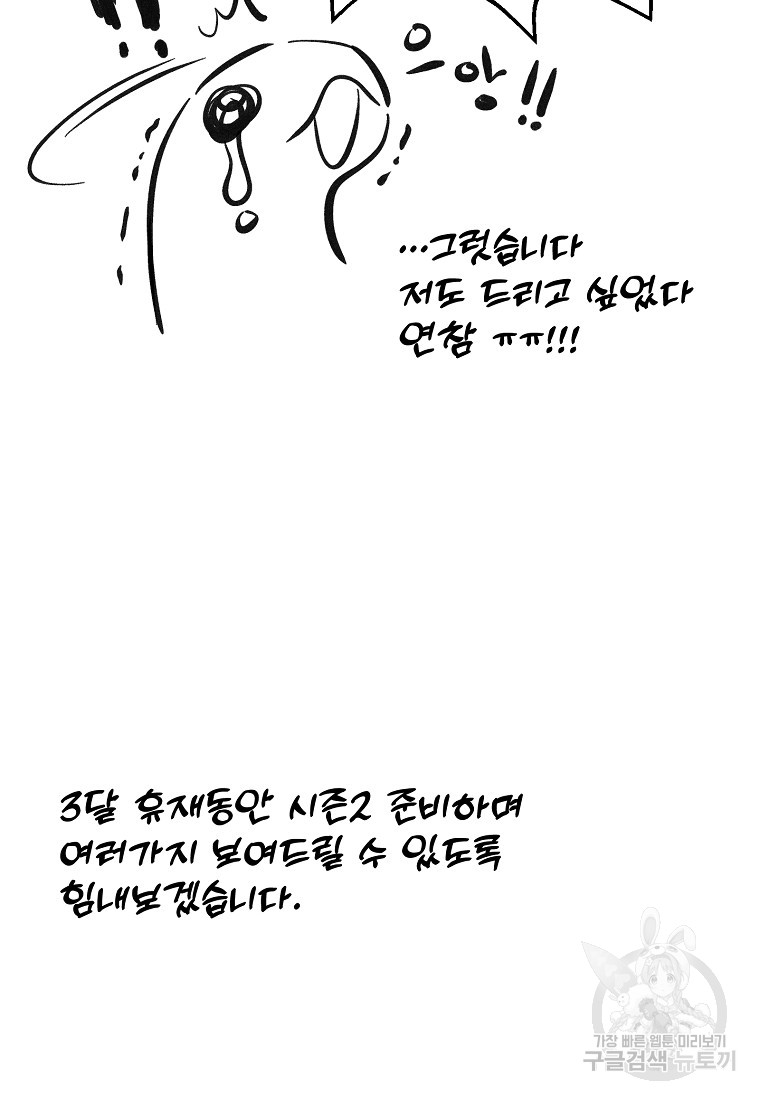 !!
으앙!!
...그럿습니다
저도 드리고 싶었다
연참 ㅠㅠ!!!
3달 휴재동안 시즌2 준비하며
여러가지 보여드릴 수 있도록
힘내보겠습니다.
가장 빠른 웹툰 미리보기
구글검색 뉴토끼